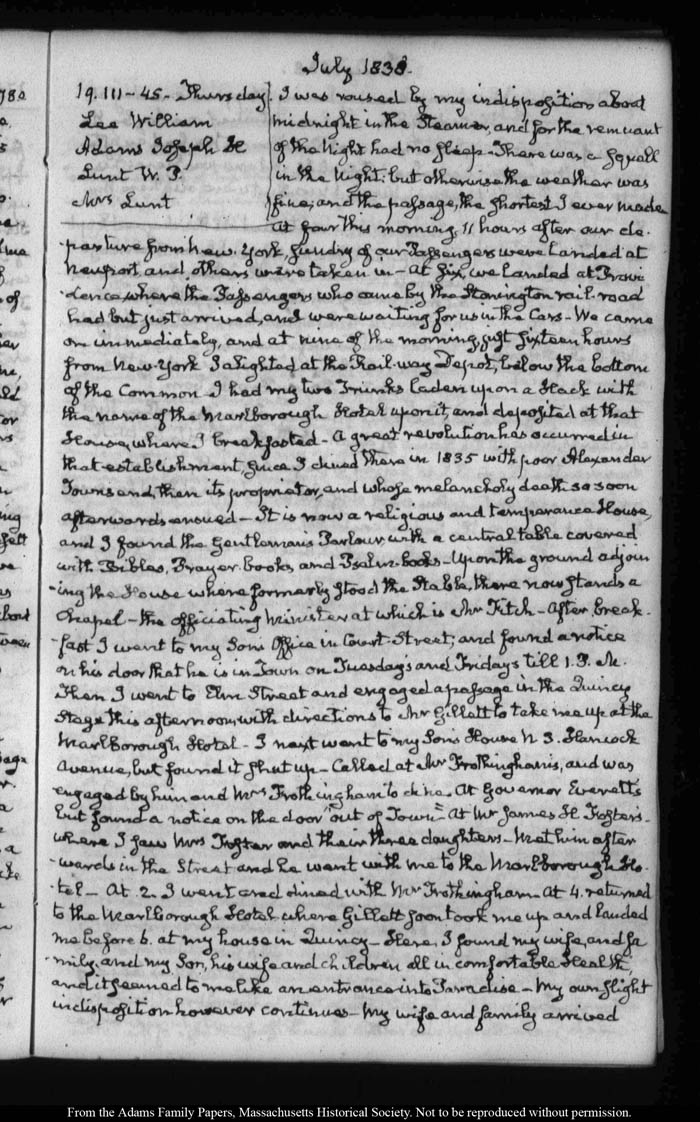 July 1838.
19. III - 45. Thursday.
Lee William
Adams Joseph H
Lunt W. P.
Mrs Lunt
I was roused by my indisposition about
midnight in the Steamer, and for the remnant
of the Night had no sleep - There was a squall
in the Night: but otherwise the weather was
fine, and the passage, the shortest I ever made
At four this morning, 11 hours after our de-
-parture from New-York, sundry of our Passengers were landed at
Newport, and others were taken in - At six, we landed at Provi-
-dence, where the Passengers who came by the Stonington rail-road
had but just arrived, and were waiting for us in the Cars - We came
on immediately, and at nine of the morning, just sixteen hours
from New-York I alighted at the Rail-way Depot, below the bottom
of the Common I had my two Trunks laden upon a Hack with
the name of the Marlborough Hotel upon it, and deposited at that
House, where I breakfasted - A great revolution has occurred in
that establishment, since I dined there in 1835 with poor Alexander
Townsend, then its proprietor, and whose melancholy death so soon
afterwards ensued - It is now a religious and temperance House,
and I found the Gentleman's Parlour with a central table covered
with Bibles, Prayer-books, and Psalm-books - Upon the ground adjoin
-ing the House where formerly stood the Stable, there now stands a
Chapel - the officiating Minister at which is Mr Fitch - After break-
-fast I went to my Son's Office in Court-Street; and found a notice
on his door that he is in Town on Tuesdays and Fridays till 1. P. M.
Then I went to Elm Street and engaged a passage in the Quincy
Stage this afternoon, with directions to Mr Gillett to take me up at the
Marlborough Hotel - I next went to my Son's House N. 3. Hancock
Avenue, but found it shut up - Called at Mr Frothingham's, and was
engaged by him and Mrs Frothingham to dine. At Governor Everett's
but found a notice on the door "out of Town" At Mr James H. Foster's -
where I saw Mrs Foster and their three daughters - Met him after
-wards in the Street and he went with me to the Marlborough Ho-
-tel - At 2. I went and dined with Mr Frothingham - At 4. returned
to the Marlborough Hotel where Gillett soon took me up and landed
me before 6. at my house in Quincy - Here, I found my wife, and fa
-mily, and my Son, his wife and children all in comfortable Health,
and it seemed to me like an entrance into Paradise - My own slight
indisposition however continues - My wife and family arrived
From the Adams Family Papers, Massachusetts Historical Society. Not to be reproduced without permission.